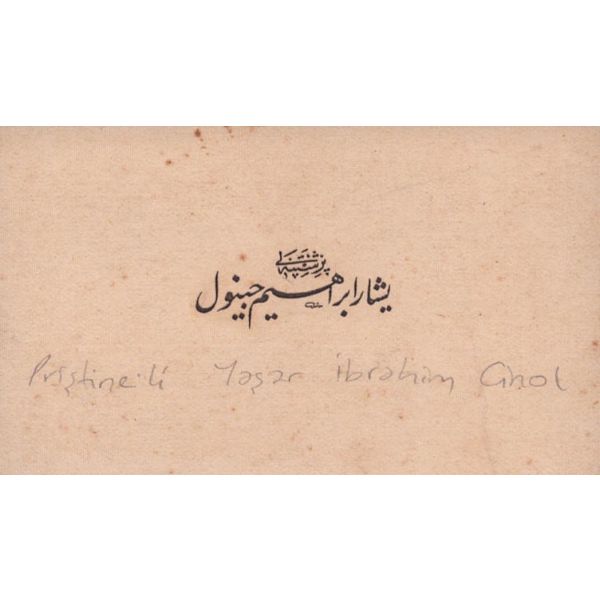 پرشتنه‌لی
یشار ابراهیم جینول
Priştineli Yaşar İbrahim Cinol